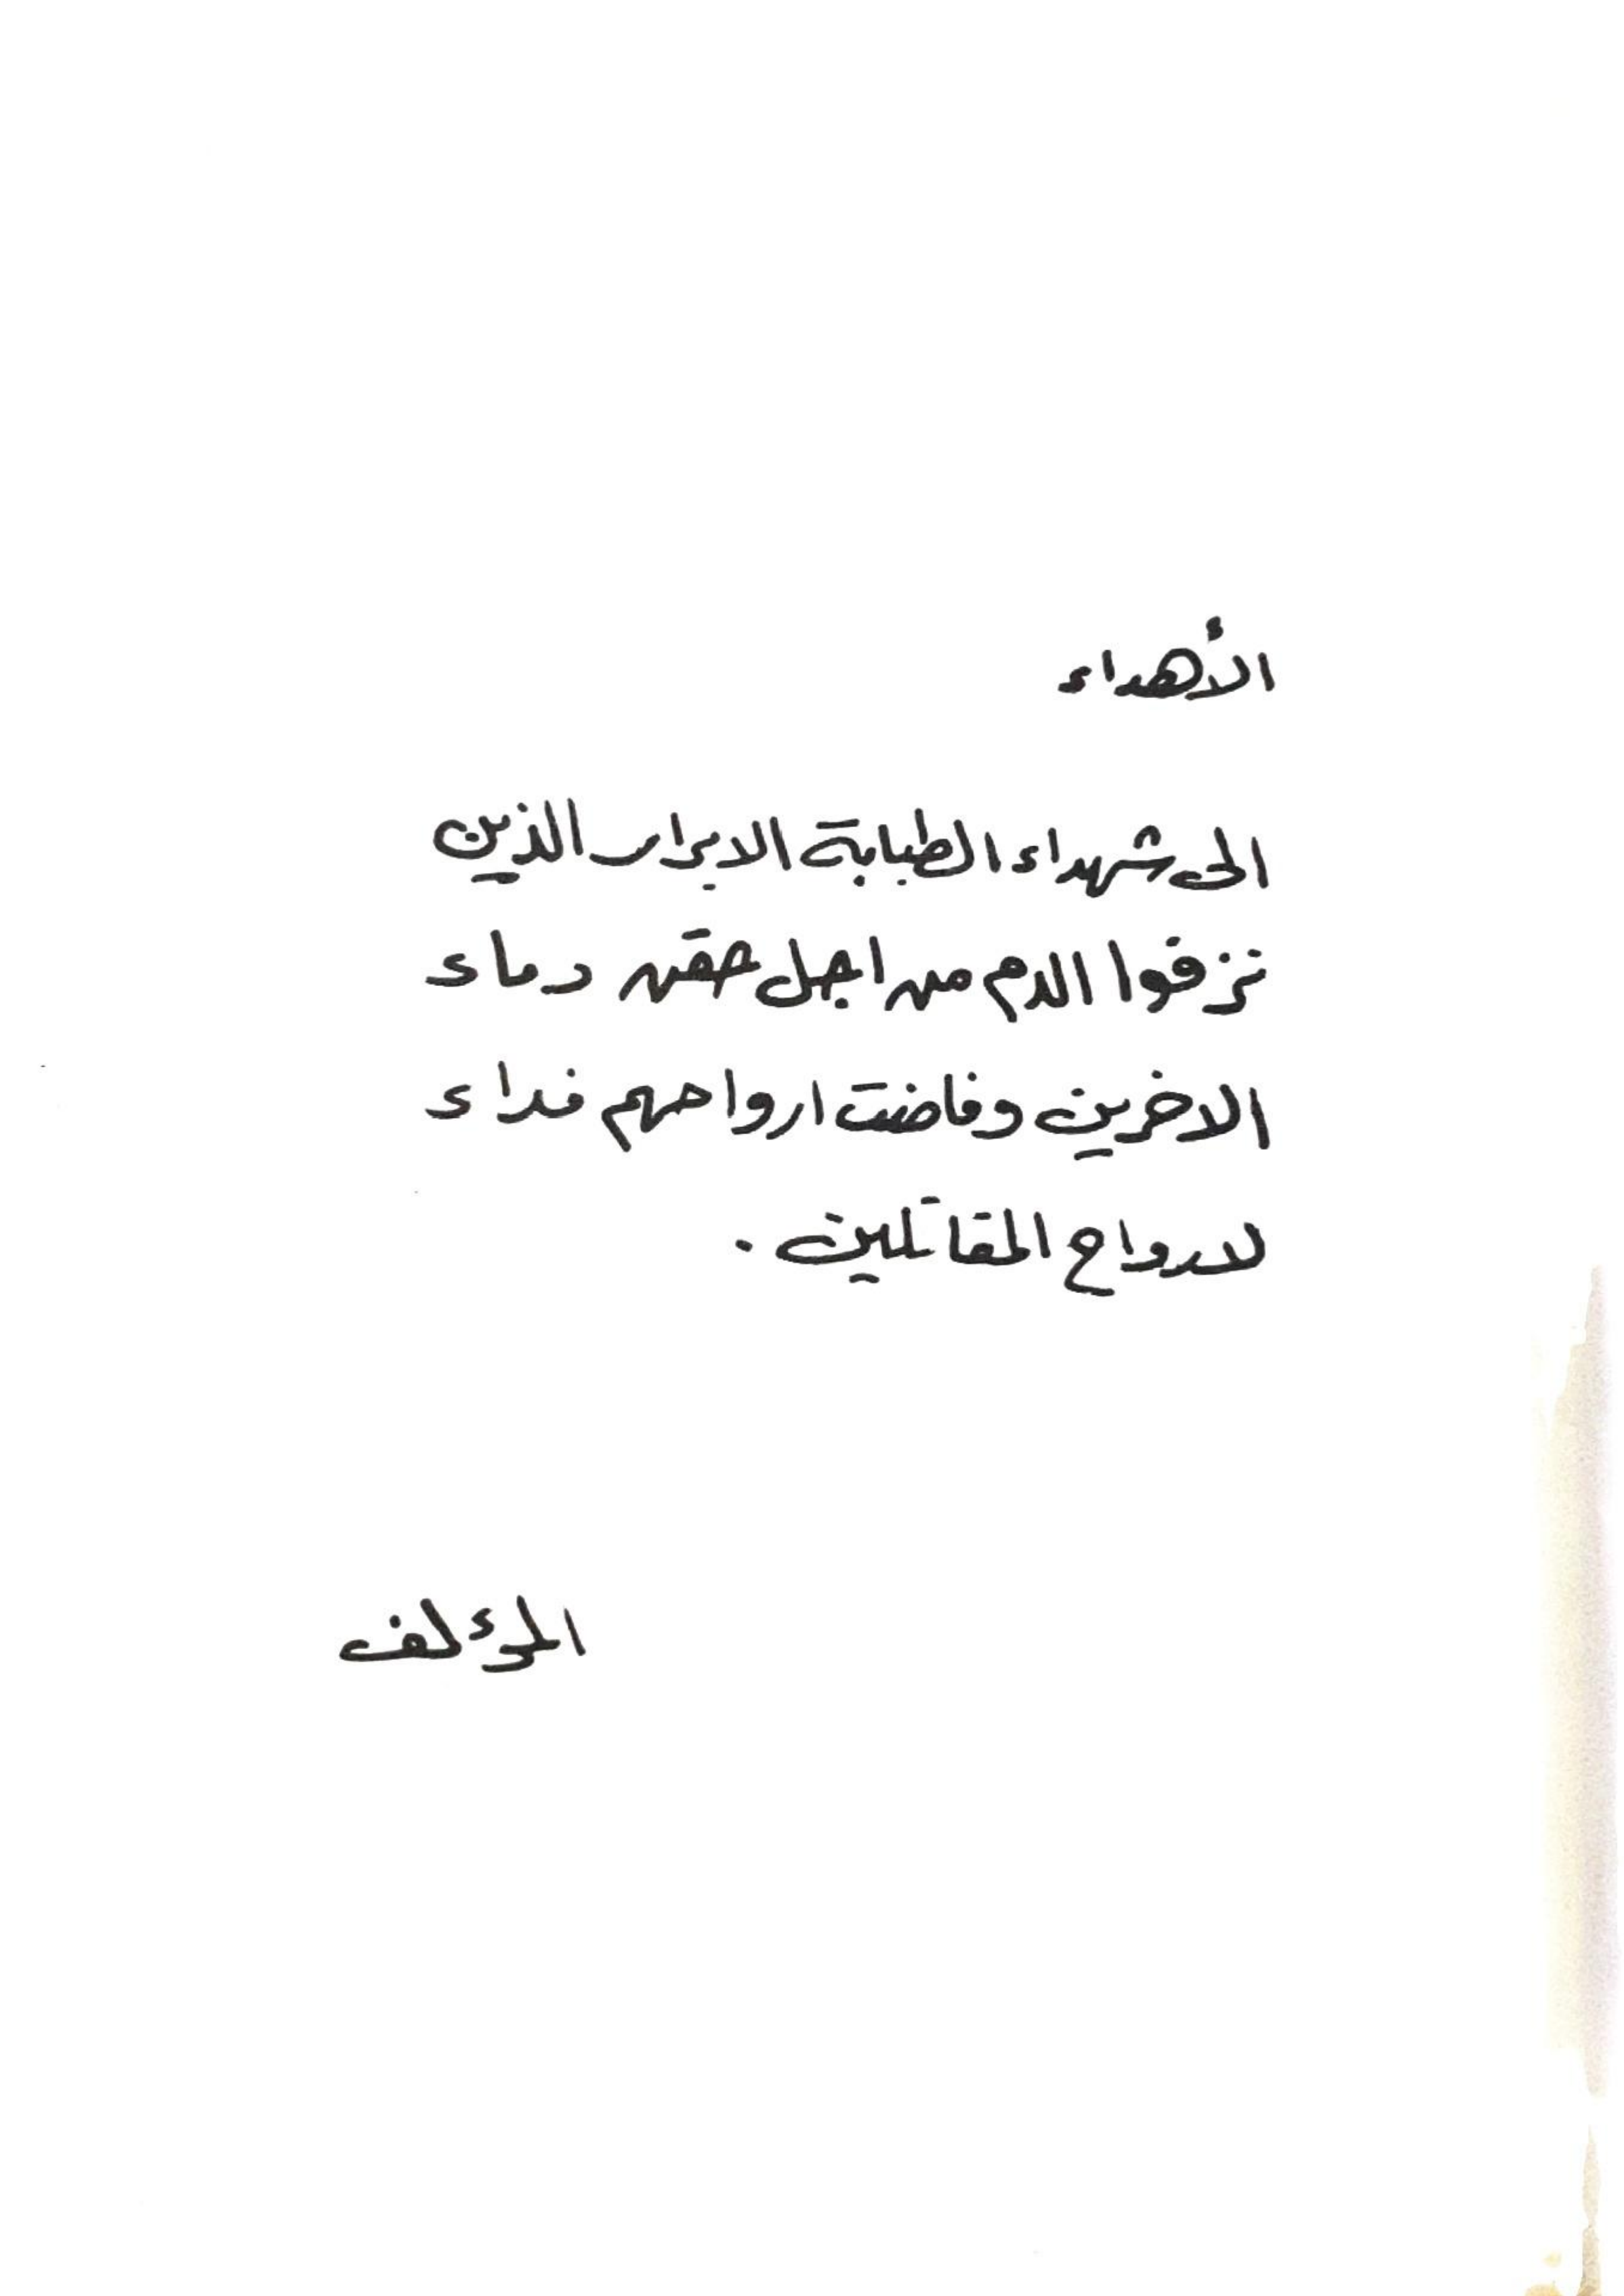 الأهداء
الى شهداء الطبابة الابرار الذين
نزفوا الدم من اجل حقن دماء
الاخرين وفاضت ارواحهم فداء
لارواح المقاتلين .
المؤلف